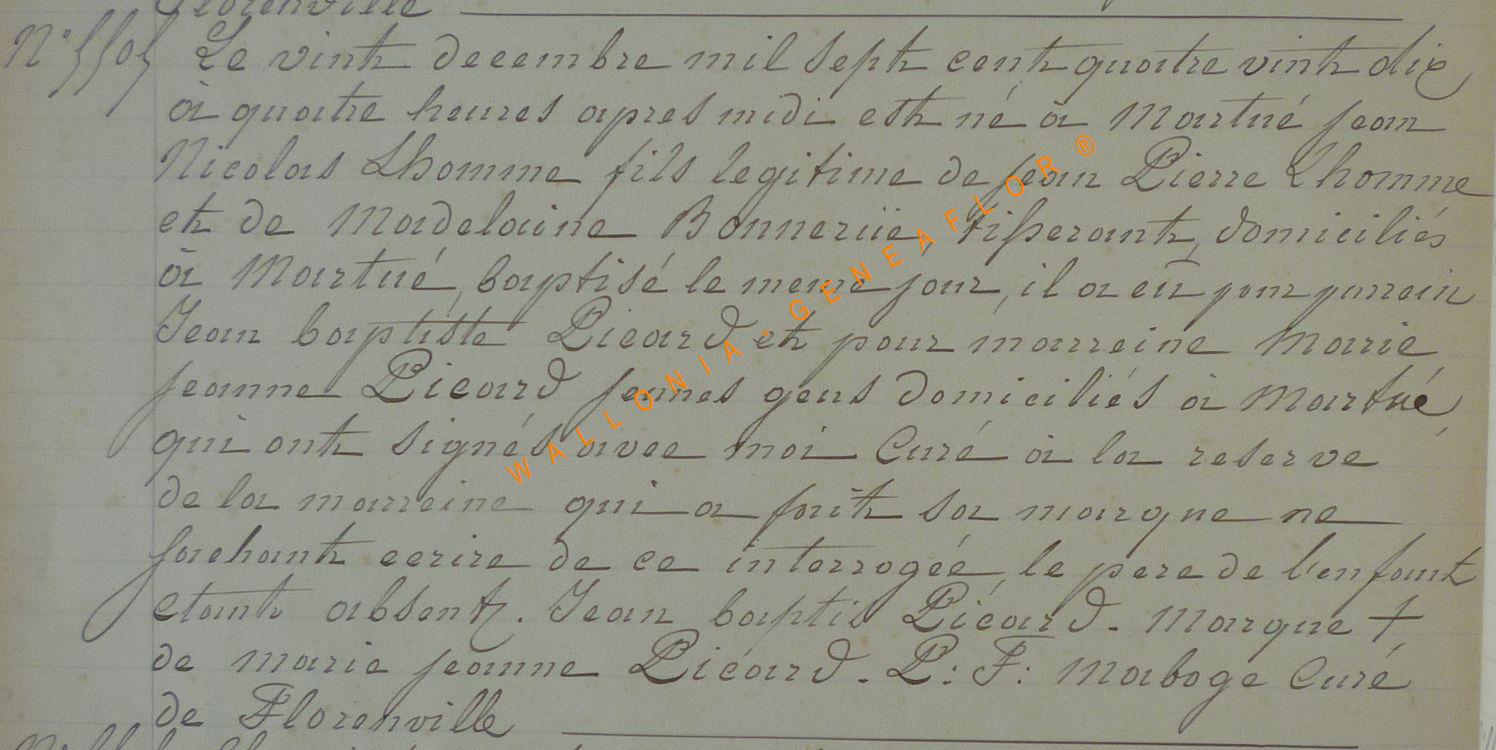 Florenville
N° 5505 Le vint decembre mil sept cent quatre vint dix
à quatre heures apres midi est né à Martué jean
Nicolas Lhomme fils legitime de jean Pierre Lhomme
et de Madelaine Bonneruë, tisserant, domiciliés
à Martué, baptisé le meme jour, il a eu pour parrein
Jean baptiste Picard et pour marreine Marie
jeanne Picard jeunes gens domiciliés à Martué,
qui ont signés avec moi Curé à la reserve
de la marreine qui a fait sa marque ne
sachant ecrire de ce interrogée, le pere de l'enfant
etant absent. Jean baptis Picard. Marque +
de marie jeanne Picard. P: F: Maboge Curé
de Florenville
WALLONIA-GENEAFLOR®